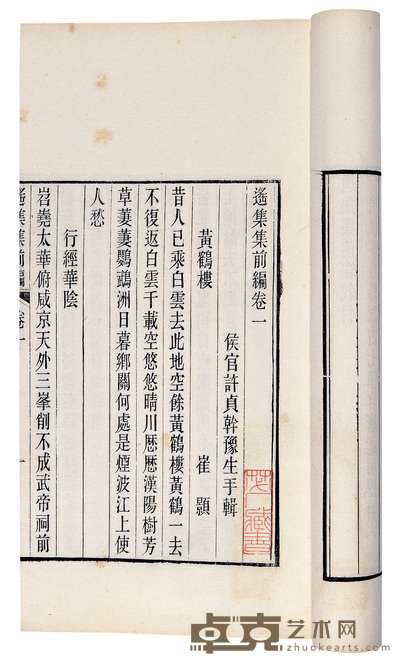 遙集集前編卷一
侯官許貞幹豫生手輯
黃鶴樓　崔顥
昔人已乘白雲去此地空餘黃鶴樓黃鶴一去
不復返白雲千載空悠悠晴川歷歷漢陽樹芳
草萋萋鸚鵡洲日暮鄉關何處是煙波江上使
人愁
行經華陰
岧嶤太華俯咸京天外三峯削不成武帝祠前
遙集集前編 卷一 一
卓克艺术网
zhuokearts.com